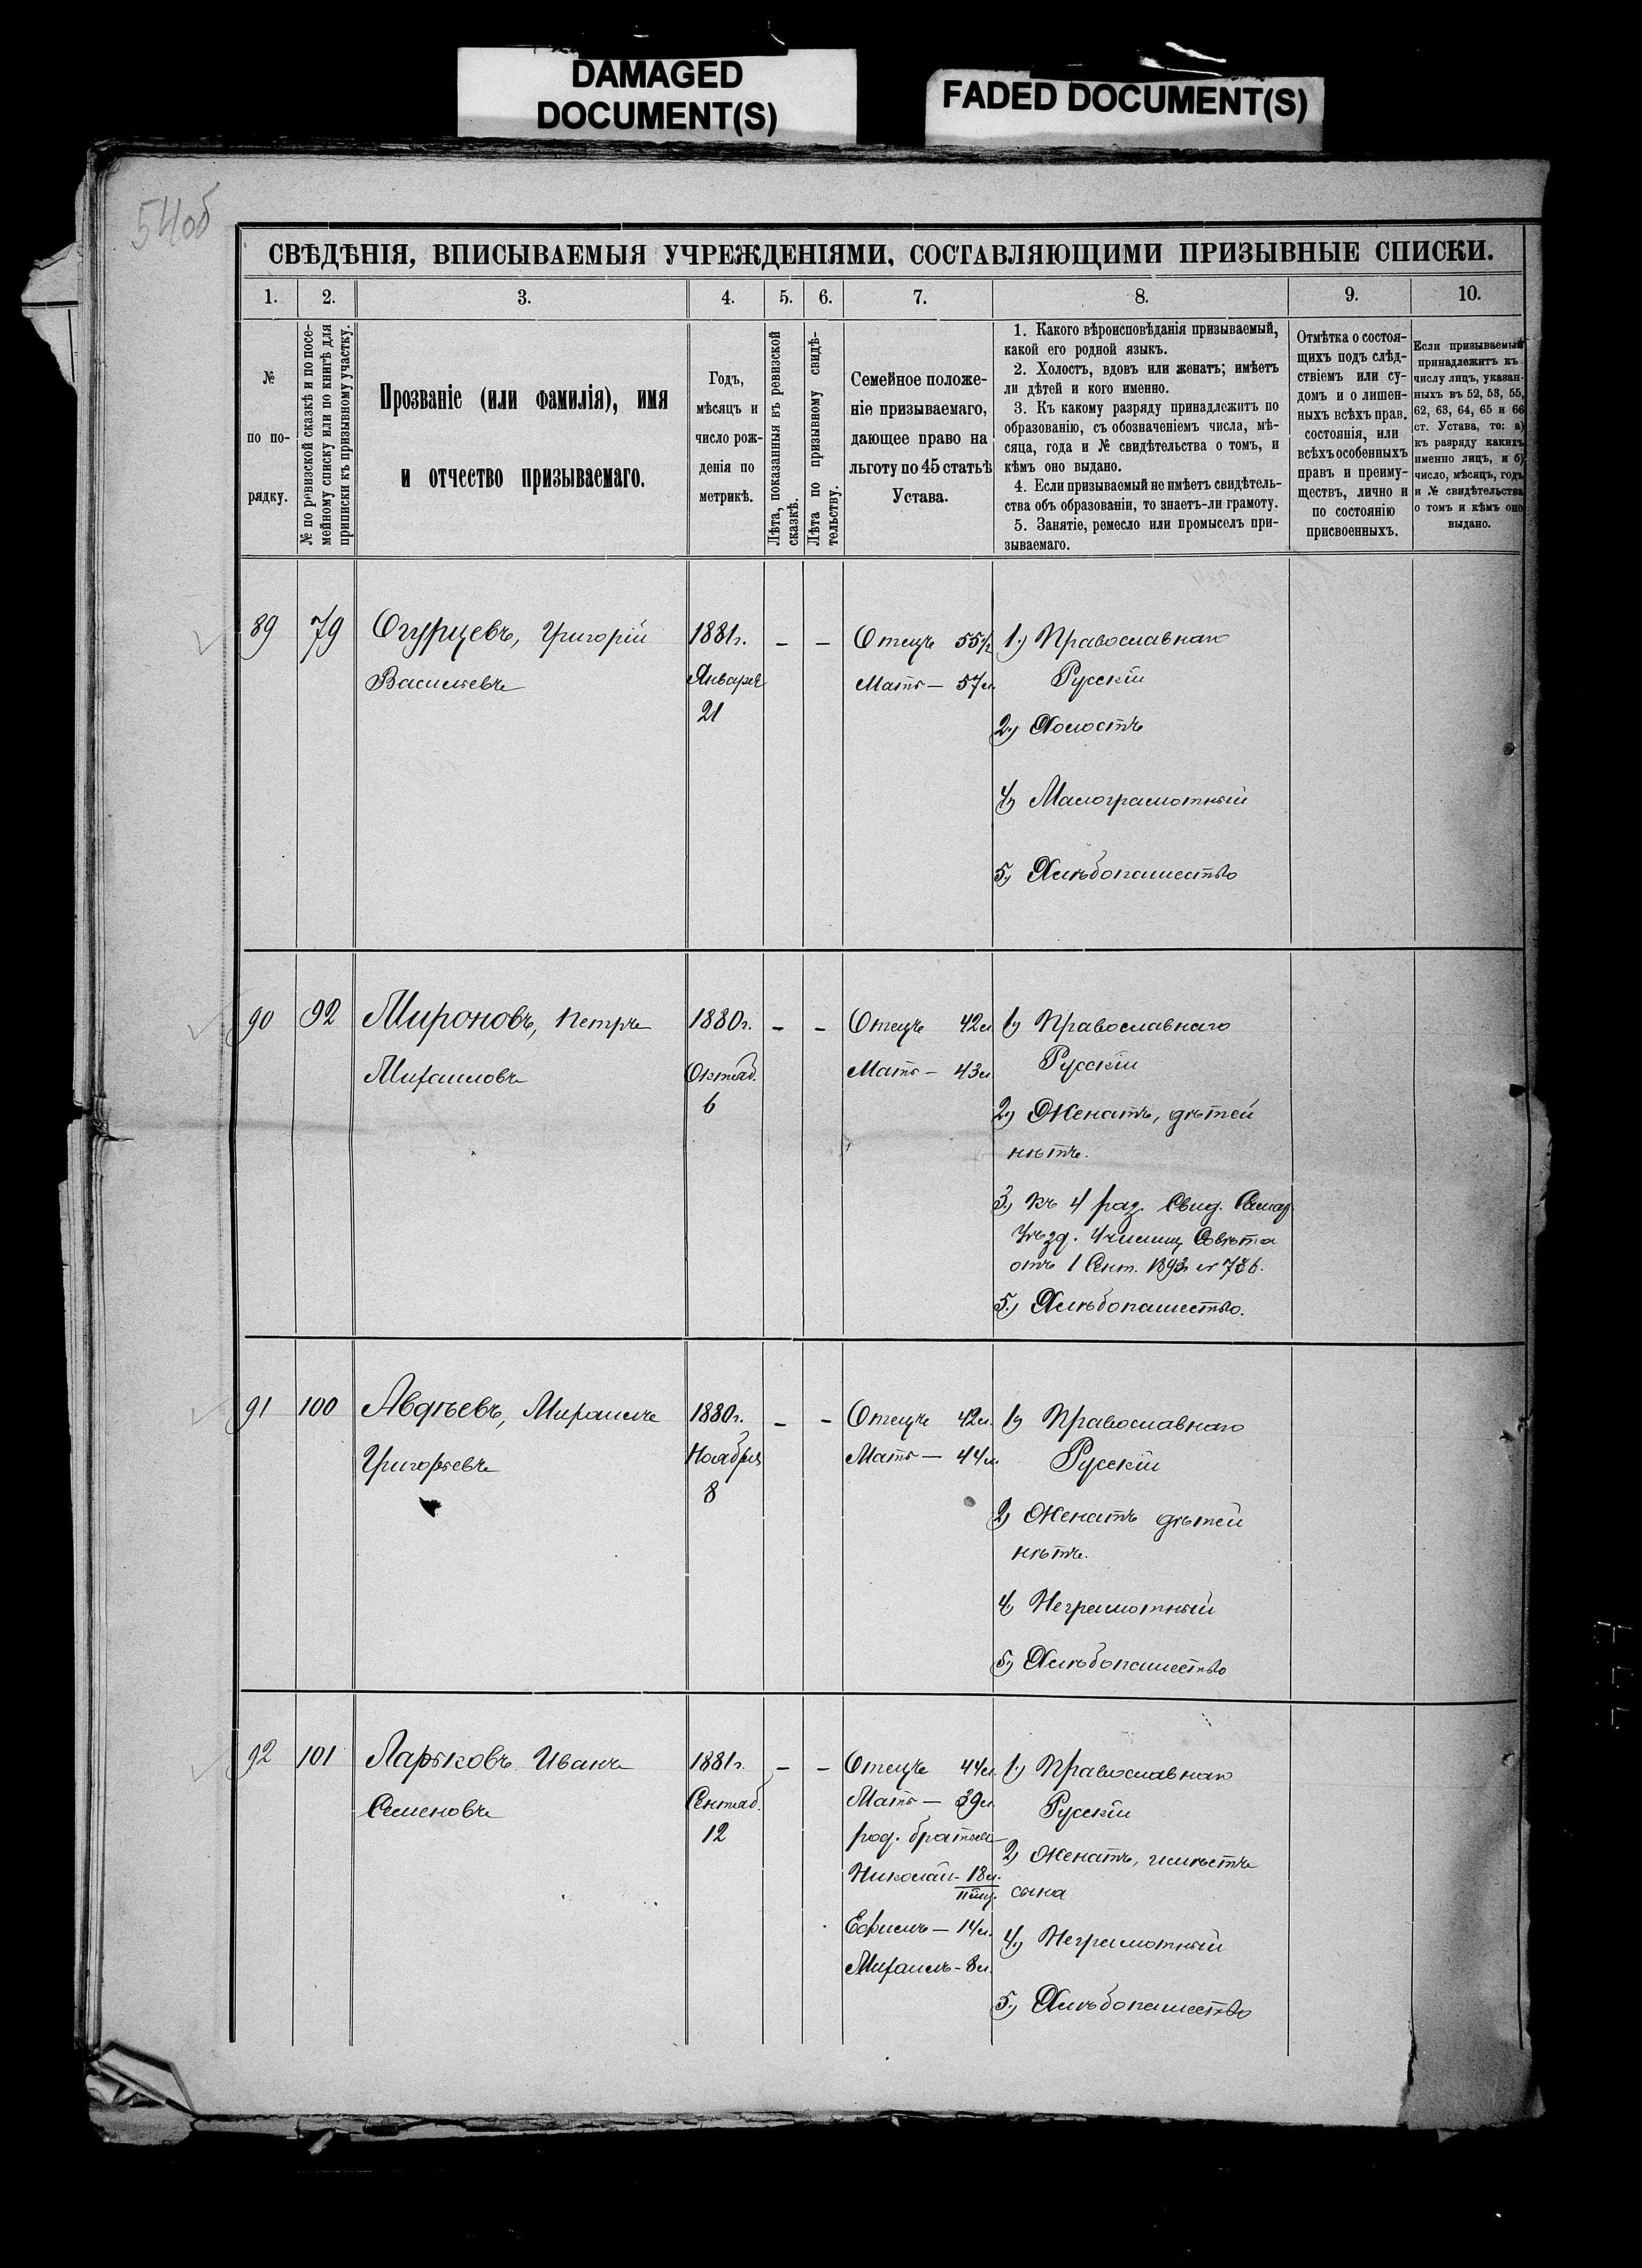 DAMAGED
DOCUMENT(S)
FADED DOCUMENT(S)
54об
СВѢДѢНІЯ, ВПИСЫВАЕМЫЯ УЧРЕЖДЕНІЯМИ, СОСТАВЛЯЮЩИМИ ПРИЗЫВНЫЕ СПИСКИ.
1. 2. 3. 4. 5. 6. 7. 8. 9. 10.
№
по по-
рядку.
№ по ревизской сказкѣ и по посе-
мейному списку или по книгѣ для
приписки къ призывному участку.
Прозваніе (или фамилія), имя
и отчество призываемаго.
Годъ,
мѣсяцъ и
число рож-
денія по
метрикѣ.
Лѣта, показанныя въ ревизской
сказкѣ.
Лѣта по призывному свидѣ-
тельству.
Семейное положе-
ніе призываемаго,
дающее право на
льготу по 45 статьѣ
Устава.
1. Какого вѣроисповѣданія призываемый,
какой его родной языкъ.
2. Холостъ, вдовъ или женатъ; имѣетъ
ли дѣтей и кого именно.
3. Къ какому разряду принадлежитъ по
образованію, съ обозначеніемъ числа, мѣ-
сяца, года и № свидѣтельства о томъ, и
кѣмъ оно выдано.
4. Если призываемый не имѣетъ свидѣтель-
ства объ образованіи, то знаетъ-ли грамоту.
5. Занятіе, ремесло или промыселъ при-
зываемаго.
Отмѣтка о состоя-
щихъ подъ слѣд-
ствіемъ или су-
домъ и о лишен-
ныхъ всѣхъ прав.
состоянія, или
всѣхъ особенныхъ
правъ и преиму-
ществъ, лично и
по состоянію
присвоенныхъ.
Если призываемый
принадлежитъ къ
числу лицъ, указан-
ныхъ въ 52, 53, 55,
62, 63, 64, 65 и 66
ст. Устава, то: а)
къ разряду какихъ
именно лицъ, и б)
число, мѣсяцъ, годъ
и № свидѣтельства
о томъ и кѣмъ оно
выдано.
89 79 Огурцевъ, Григорій
Васильевъ
1881г.
Января
21
– –
Отецъ 55л
Мать — 57л.
1.) Православнаго
Русскій
2.) Холостъ
4) Малограмотный
5.) Хлѣбопашество
90 92 Мироновъ, Петръ
Михаиловъ
1880г.
Октяб.
6
– –
Отецъ 42л
Мать — 43л
1) Православнаго
Русскій
2) Женатъ, дѣтей
нѣтъ.
3.) Къ 4 раз. Свид. Самар
Уѣзд. Училищ Совѣта
отъ 1 Сент. 1893 № 786.
5.) Хлѣбопашество.
91 100 Авдѣевъ, Михаилъ
Григорьевъ
1880г.
Ноября
8
– –
Отецъ 42л.
Мать — 44л.
1) Православнаго
Русскій
2) Женатъ дѣтей
нѣтъ.
4) Неграмотный
5) Хлѣбопашество
92 101 Ларьковъ Иванъ
Семеновъ
1881г.
Сентяб.
12
– –
Отецъ 44л.
Мать — 39л
род. братья
Николай - 18л.
Ефимъ — 14л.
Михаилъ - 8л.
1.) Православнаго
Русскій
2) Женатъ, имѣетъ
сына
4.) Неграмотный
5.) Хлѣбопашество